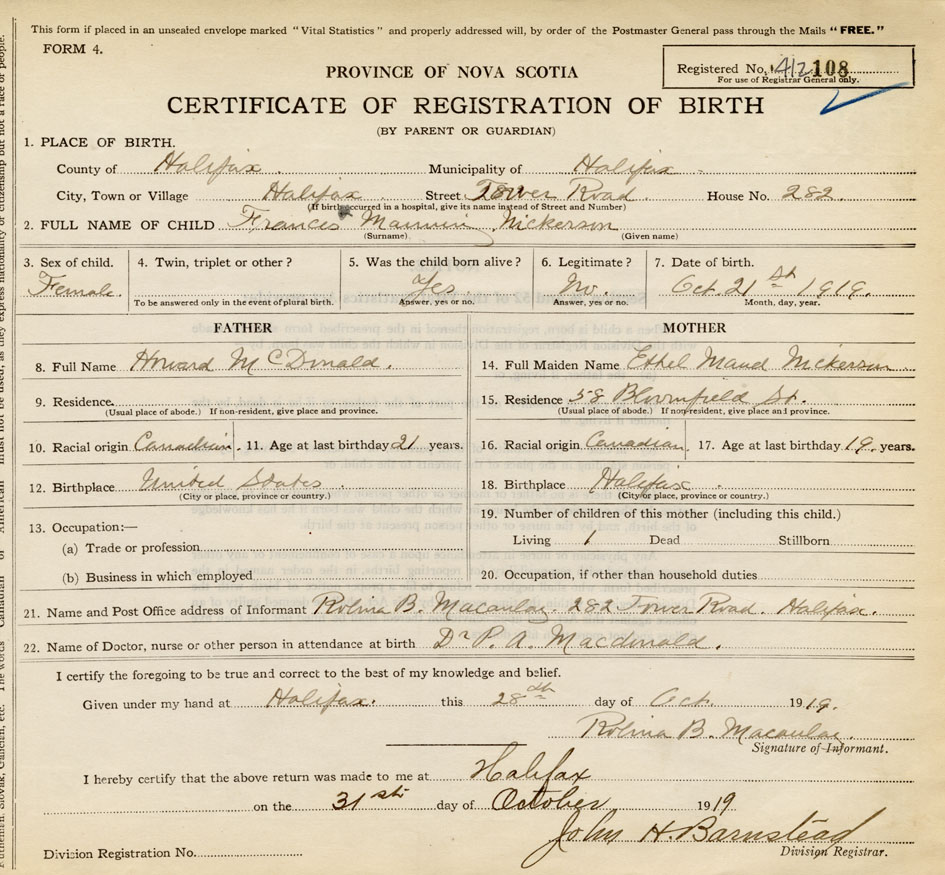 This form if placed in an unsealed envelope marked "Vital Statistics" and properly addressed will, by order of the Postmaster General pass through the Mails "FREE."
FORM 4.
Registered No. 108
For use of Registrar General only.
PROVINCE OF NOVA SCOTIA
CERTIFICATE OF REGISTRATION OF BIRTH
(BY PARENT OR GUARDIAN)
1. PLACE OF BIRTH.
County of Halifax Municipality of Halifax
City, Town or Village Halifax Street Tower Road House No. 282
(If birth occurred in a hospital, give its name instead of Street and Number)
2. FULL NAME OF CHILD Frances Nickerson
(Surname) (Given name)
3. Sex of child. 4. Twin, triplet or other? 5. Was the child born alive? 6. Legitimate? 7. Date of birth.
Female. Yes. No. Oct. 21st 1919.
To be answered only in the event of plural birth. Answer, yes or no. Answer, yes or no. Month, day, year.
FATHER MOTHER
8. Full Name Howard McDonald. 14. Full Maiden Name Ethel Maud Nickerson
9. Residence 15. Residence 58 Bloomfield St.
(Usual place of abode.) If non-resident, give place and province. (Usual place of abode.) If non-resident, give place and province.
10. Racial origin Canadian. 11. Age at last birthday 21 years. 16. Racial origin Canadian. 17. Age at last birthday 19 years.
12. Birthplace United States. 18. Birthplace Halifax
(City or place, province or country.) (City or place, province or country.)
13. Occupation:— 19. Number of children of this mother (including this child.)
(a) Trade or profession Living 1 Dead Stillborn
(b) Business in which employed 20. Occupation, if other than household duties
21. Name and Post Office address of Informant Rolina B. Macaulay. 282 Tower Road. Halifax.
22. Name of Doctor, nurse or other person in attendance at birth Dr P. A. Macdonald.
I certify the foregoing to be true and correct to the best of my knowledge and belief.
Given under my hand at Halifax. this 28th day of Oct. 1919.
Rolina B. Macaulay
Signature of Informant.
I hereby certify that the above return was made to me at Halifax
on the 31st day of October 1919
John H. Barnstead
Division Registration No. Division Registrar.